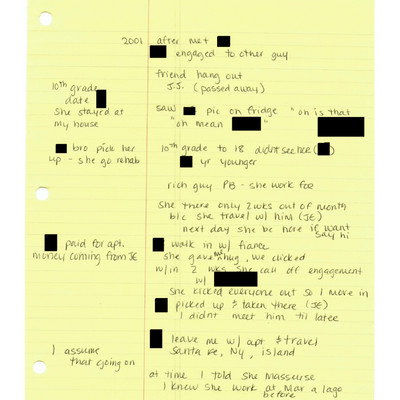 2001 after met
engaged to other guy
friend hang out
J.J. (passed away)
10th grade
date
she stayed at
my house
saw pic on fridge "oh is that
"oh mean
bro pick her
up - she go rehab
10th grade to 18 didn't see her ( )
yr younger
rich guy PB - she work for
she there only 2wks out of month
b/c she travel w/ him (JE)
next day she be here if want
say hi
paid for apt.
money coming from JE
walk in w/ fiance
she gave me hug, we clicked
w/in 2 wks she call off engagement
w/
she kicked everyone out so I move in
picked up & taken there (JE)
I didnt meet him til later
leave me w/ apt & travel
Santa Fe, NY, island
I assume
that going on
at time I told she masseuse
I knew she work at Mar a lago
before